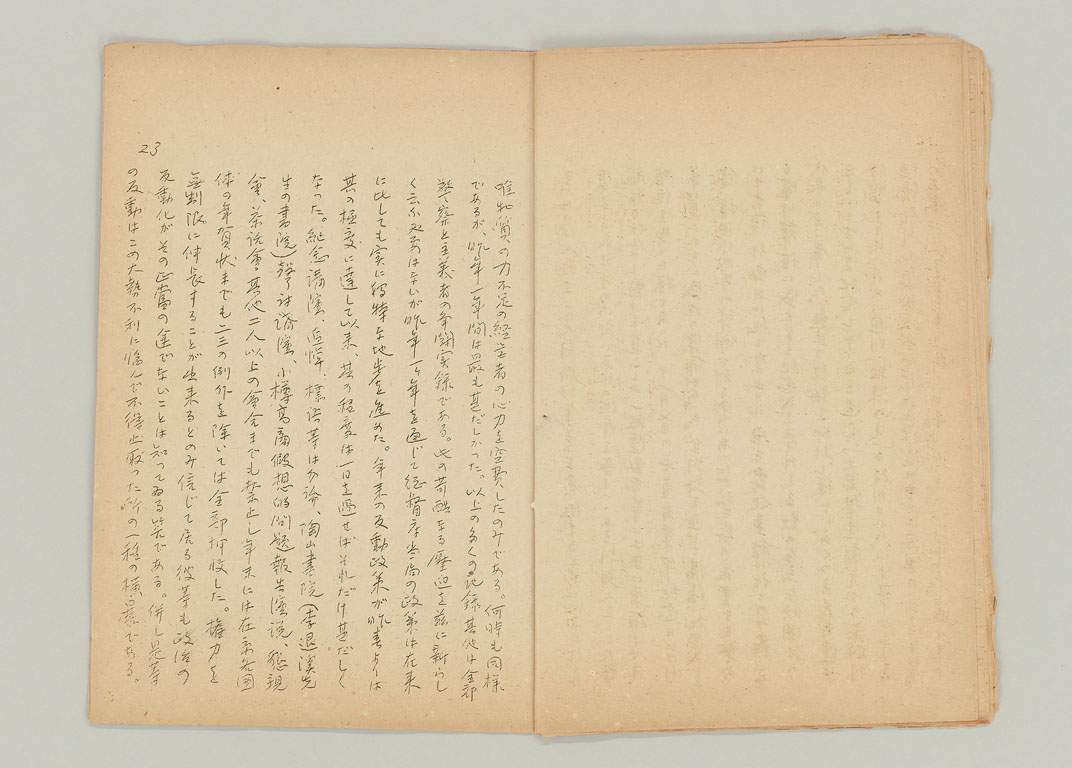 唯物質の力不足の経営者の心力を空費したのみである。何時も同様
であるが、昨年一年間は最も甚だしかった。以上の多くの記録其他は全部
警察と主義者の争闘実録である。此の苛酷なる壓迫を茲に新らし
く云ふ必要はないが昨年一ヶ年を通じて総督府当局の政策は在来
に比しても実に独特な地歩を進めた。年来の反動政策が昨春よりは
其の極度に達して以来、其の程度は一日を過せばそれだけ甚だしく
なった。紀念講演、追悼、標語等は勿論、陶山書院(李退溪先
生の書院)聲討講演、小樽高商假想的問題報告演説、懇親
會、茶話會、其他二人以上の會合までも禁止し年末には在京各団
体の年賀状までも二三の例外を除いては全部押收した。権力を
無制限に伸長することが出来るとのみ信じて居る彼等も政治の
反動化がその正當の途でないことは知ってゐる筈である。併し是等
の反動はこの大勢不利に悩んで不得止取った所の一種の横暴である。
23